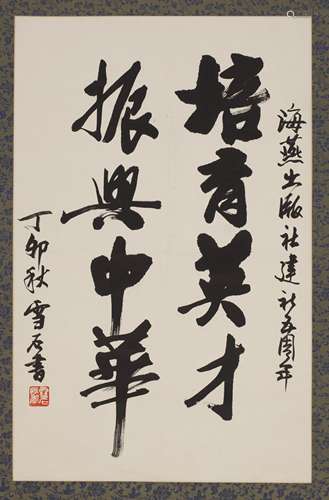 海燕出版社建社五周年
培育英才
振興中華
丁卯秋雪石書